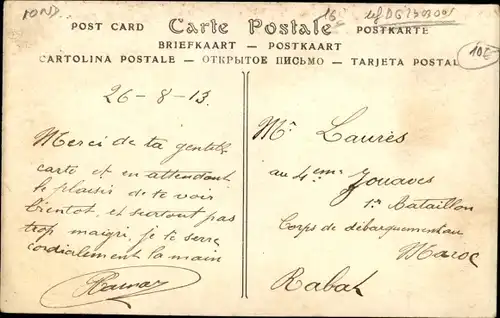 FOND
16
POST CARD
Carte Postale
POSTKARTE
BRIEFKAART — POSTKAART
10E
CARTOLINA POSTALE — ОТКРЫТОЕ ПИСЬМО — TARJETA POSTAL
26-8-13.
Merci de ta gentille
carte et en attendant
le plaisir de te voir
bientot, et surtout pas
trop maigri, je te serre
cordialement la main
Mr Laurès
au 4eme Zouaves
1er Bataillon
Corps de débarquement au
Maroc
Rabat